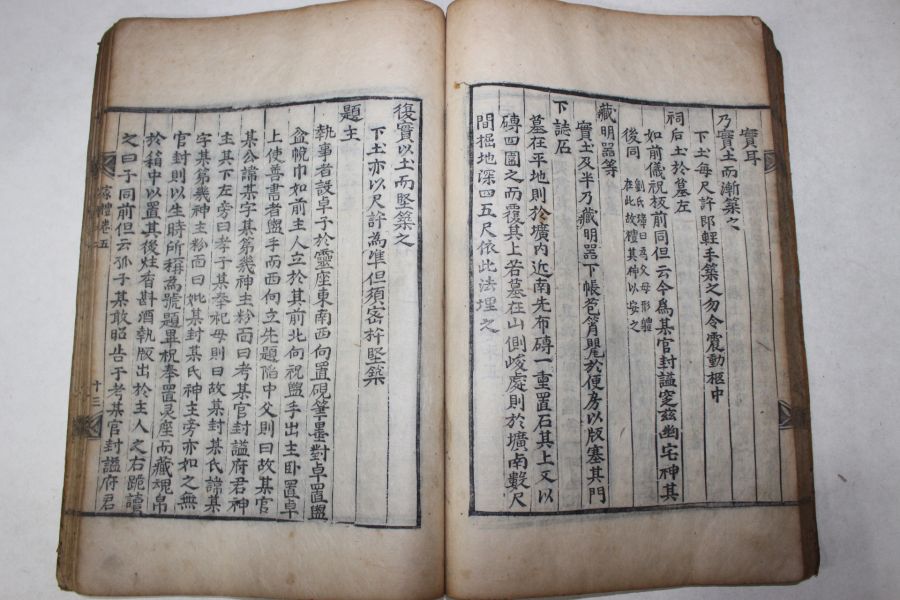 實耳
乃實土而漸築之
下土每尺許即輕手築之勿令震動柩中
祠后土於墓左
如前儀祝板前同但云今爲某官封謚窆玆幽宅神其
後同 劉氏璋曰爲父母形體
在此故禮其神以安之
藏明器等
實土及半乃藏明器下帳苞筲甖於便房以版塞其門
下誌石
墓在平地則於壙内近南先布磚一重置石其上又以
磚四圍之而覆其上若墓在山側峻處則於壙南數尺
間掘地深四五尺依此法埋之
復實以土而堅築之
下土亦以尺許為准但須密杵堅築
題主
執事者設卓子於靈座東南西向置硯筆墨對卓置盥
盆帨巾如前主人立於其前北向祝盥手出主卧置卓
上使善書者盥手西向立先題陷中父則曰故某官
某公諱某字某第幾神主粉面曰考某官封謚府君神
主其下左旁曰孝子某奉祀母則曰故某封某氏諱某
字某第幾神主粉面曰妣某封某氏神主旁亦如之無
官封則以生時所稱為號題畢祝奉置灵座而藏魂帛
於箱中以置其後炷香斟酒執版出於主人之右跪讀
之曰子同前但云孤子某敢昭告于考某官封謚府君
家禮卷五
十三